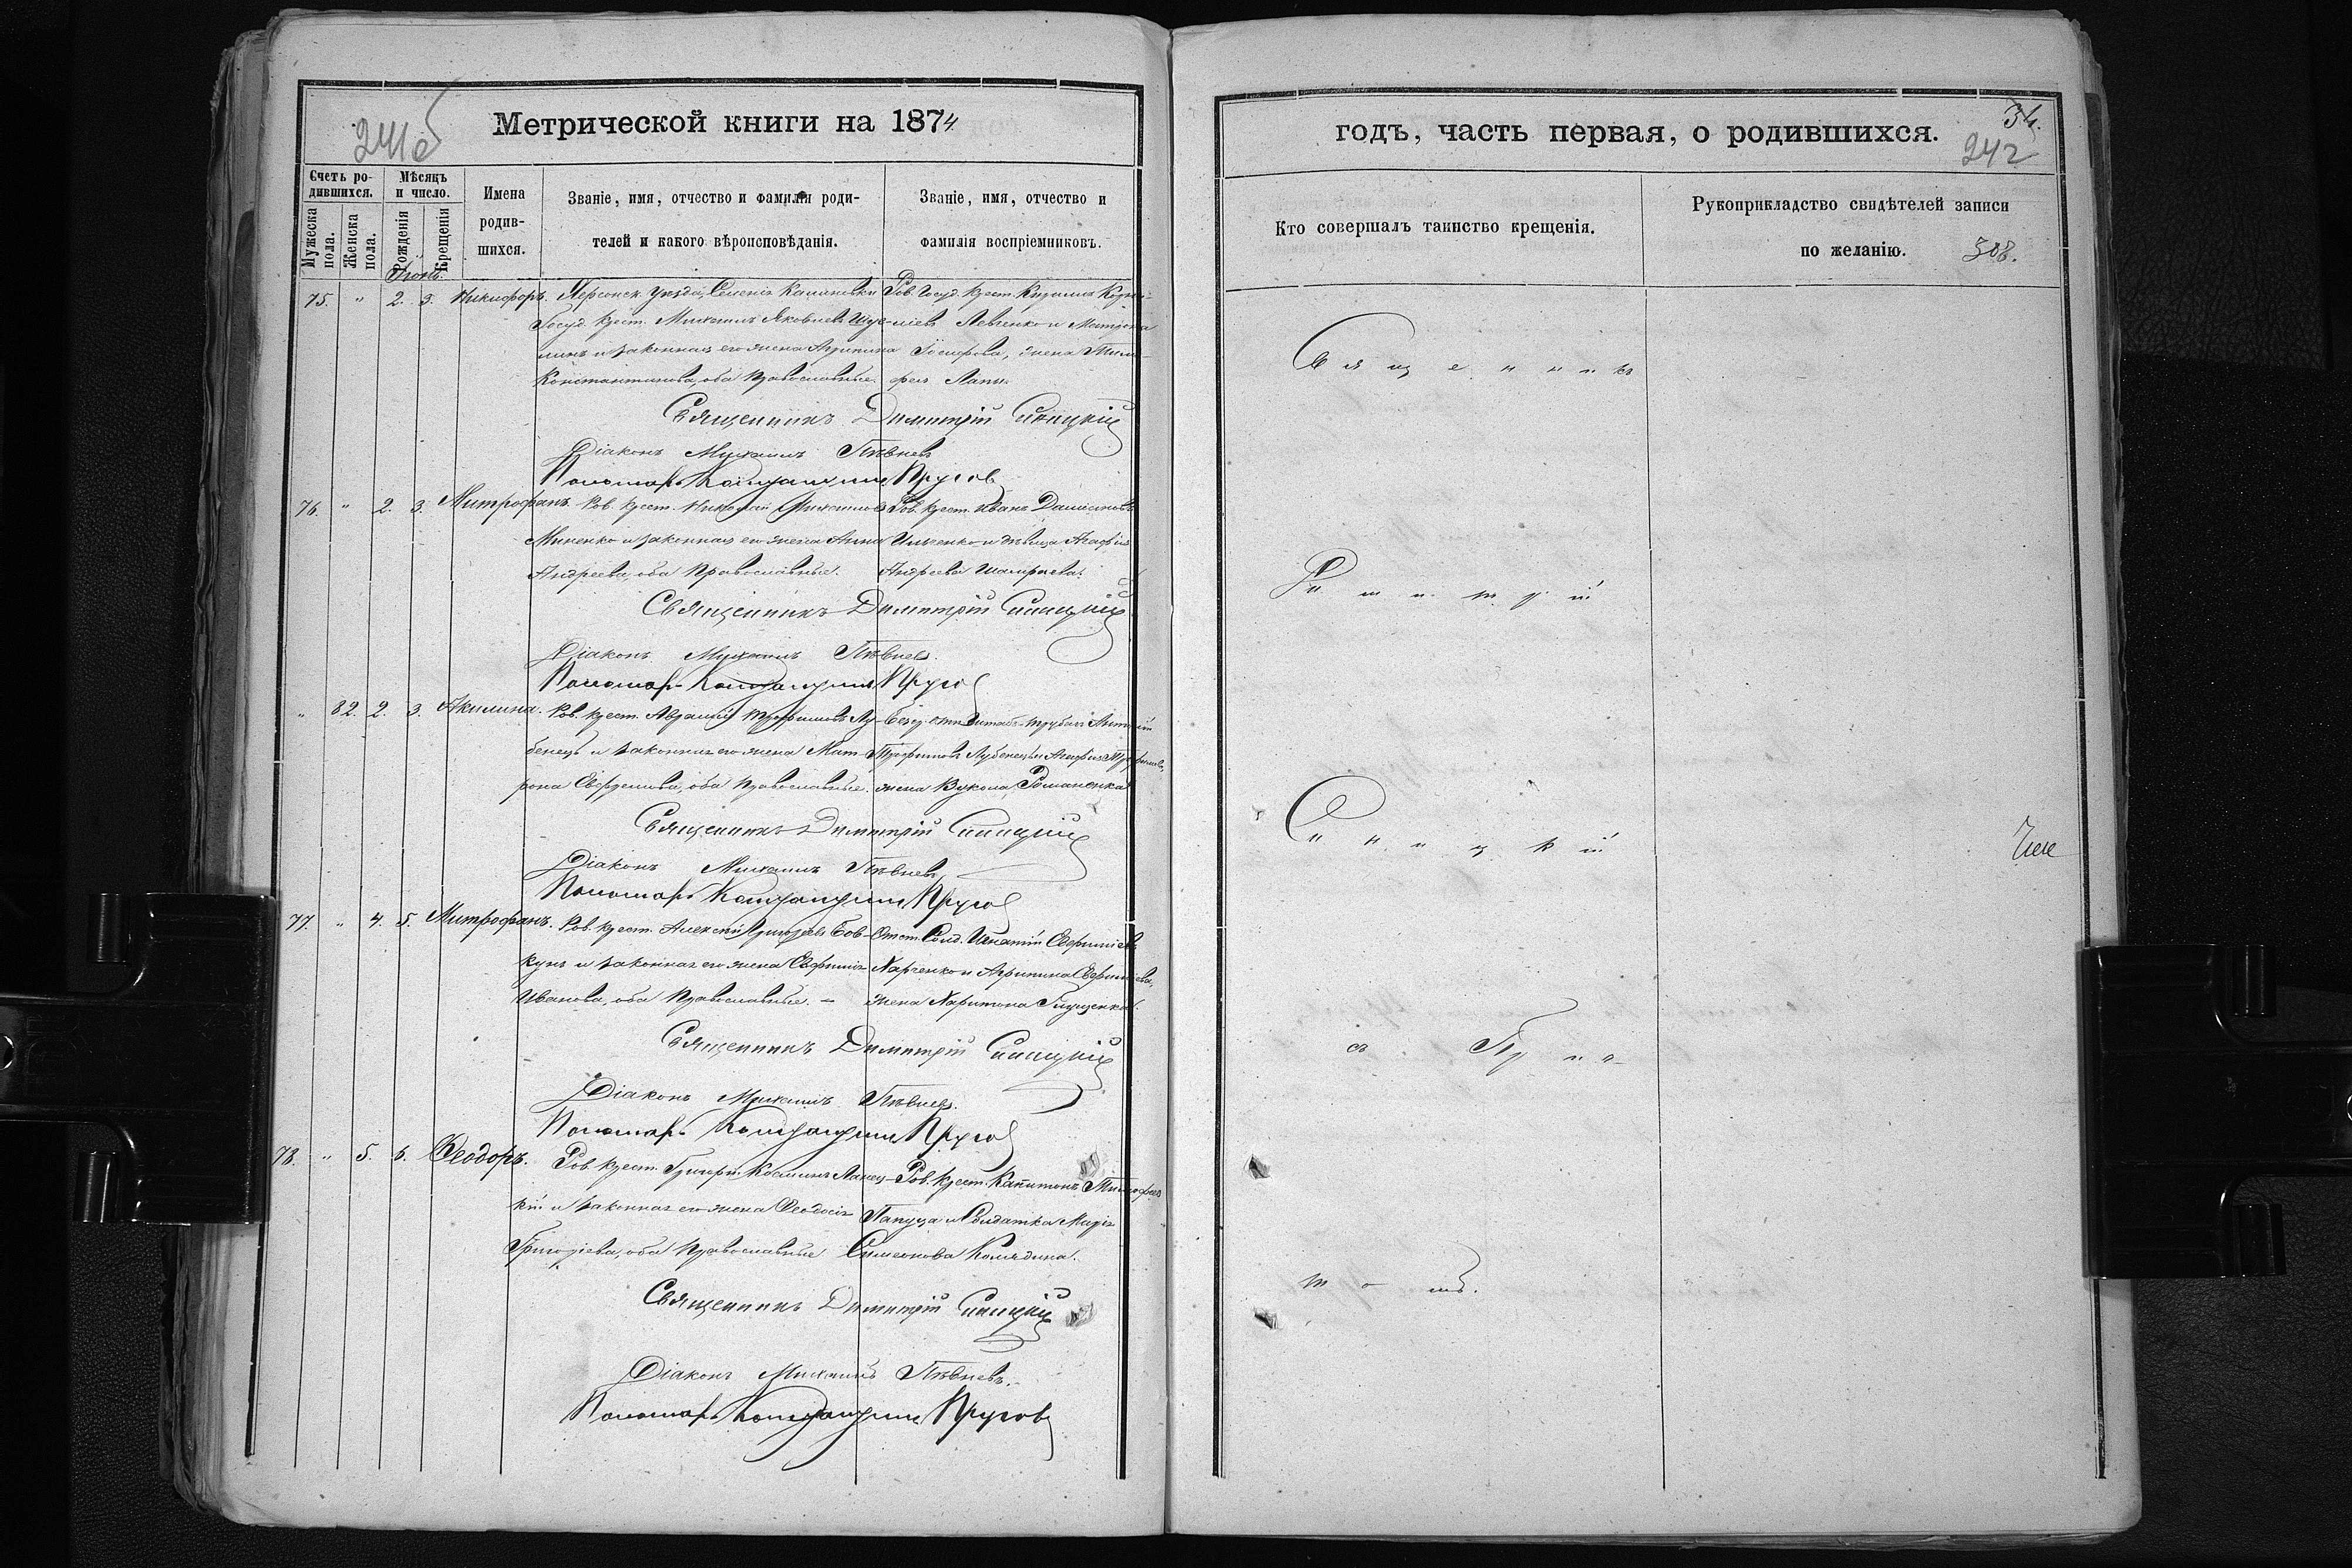 241об
Метрической книги на 1874
Счетъ ро-
дившихся.
Мѣсяцъ
и число.
Имена
родив-
шихся.
Званіе, имя, отчество и фамилія роди-
телей и какого вѣроисповѣданія.
Званіе, имя, отчество и
фамилія воспріемниковъ.
Мужеска
пола.
Женска
пола.
Рожденія
Крещенія
75. " 2. 3. Никифоръ. Херсонск. Уѣзда, Селенія Калиновки
Госуд. крест. Михаилъ Яковлевъ
и законная его жена Агрипина
Константинова, оба Православные.
Гов. Госуд. крест. Кирилъ
Левченко и Матрона
Іосифова, жена
Священникъ Димитрій Синицкій
Діаконъ Михаилъ Пѣвневъ
Пономарь Константинъ Пругов
76. " 2. 3. Митрофанъ. Гов. крест. Николай Михаиловъ
Миненко и законная его жена Анна
Андреева, оба Православные.
Гов. крест. Иванъ Даміановъ
Ильченко и дѣвица Агафія
Андреева
Священникъ Димитрій Синицкій
Діаконъ Михаилъ Пѣвневъ.
Пономарь Константинъ Пругов
" 82. 2. 3. Акилина. Гов. крест. Авраамій Трофимовъ Лу-
бенецъ и законная его жена Мат-
рона Евфремова, оба Православные.
Трофимовъ Лубенецъ и Агафія Трофимова,
жена Вукола Романенка
Священникъ Димитрій Синицкій
Діаконъ Михаилъ Пѣвневъ
Пономарь Константинъ Пругов
77. " 4. 5. Митрофанъ. Гов. крест. Алексій Григорьевъ Бов-
кунъ и законная его жена Евфимія
Иванова, оба Православные. –
Отст. Солд. Игнатій Евфиміевъ
Харченко и Агрипина Евфиміева,
жена Харитона Глущенка.
Священникъ Димитрій Синицкій
Діаконъ Михаилъ Пѣвневъ.
Пономарь Константинъ Пругов
78. " 5. 6. Феодоръ. Гов. крест. Григорій Косминъ
и законная его жена Феодосія
Григоріева, оба Православные
Гов. крест. Капитонъ Тимофеевъ
Папуца и Солдатка Марія
Симеонова Колядина.
Священникъ Димитрій Синицкій
Діаконъ Михаилъ Пѣвневъ.
Пономарь Константинъ Пругов
34.
242
годъ, часть первая, о родившихся.
Кто совершалъ таинство крещенія.
Рукоприкладство свидѣтелей записи
по желанію.
308.
Священникъ
Димитрій
Синицкій
съ При-
томъ.